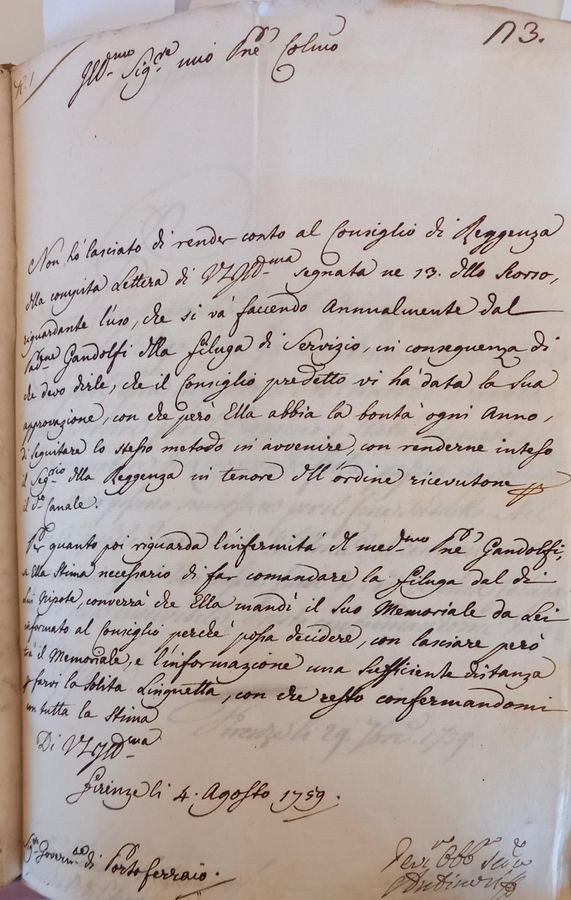 N 3.
N. 1
Ill.mo Sig.re mio Pne Colmo
Non hò lasciato di render conto al Consiglio di Reggenza
della compita Lettera di VSIll.ma segnata ne 13. dello scorso,
riguardante l'uso, che si và faccendo Annualmente dal
Pad.ne Gandolfi della filuga di Servizio, in conseguenza di
che devo dirle, che il Consiglio predetto vi hà data la Sua
approvazione, con che però Ella abbia la bontà ogni Anno,
di seguitare lo stesso metodo in avvenire, con renderne inteso
il Seg.rio della Reggenza in tenore dell'ordine ricevutone
il d.o Canale.
Per quanto poi riguarda l'infermità del med.mo Pne Gandolfi,
se Ella Stima necessario di far comandare la filuga dal di
Lui Nipote, converrà che Ella mandi il Suo Memoriale da Lei
informato al Consiglio perchè possa decidere, con lasciare però
trà il Memoriale, e l'informazione una sufficiente distanza
p farvi la solita Linguetta, con che resto confermandomi
con tutta la Stima
Di VSIll.ma
Firenze li 4. Agosto 1759.
Sig.r Govern.re di Portoferraio.
Dev.mo Obb.mo Ser.re